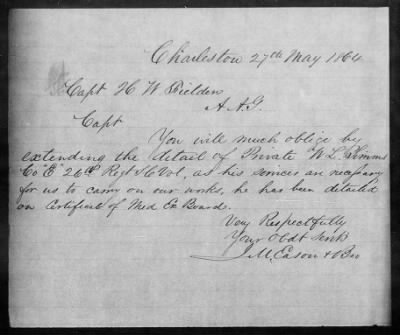 Charleston 27th May 1864
Capt H W Feilden
A.A.G.
Capt
You will much oblige by
extending the detail of Private W L Simms
Co "E" 26th Regt SC Vol, as his services are necessary
for us to carry on our works, he has been detailed
on Certificate of Med Ex Board.
Very Respectfully
Your Obdt Servts
J M. Eason & Bro